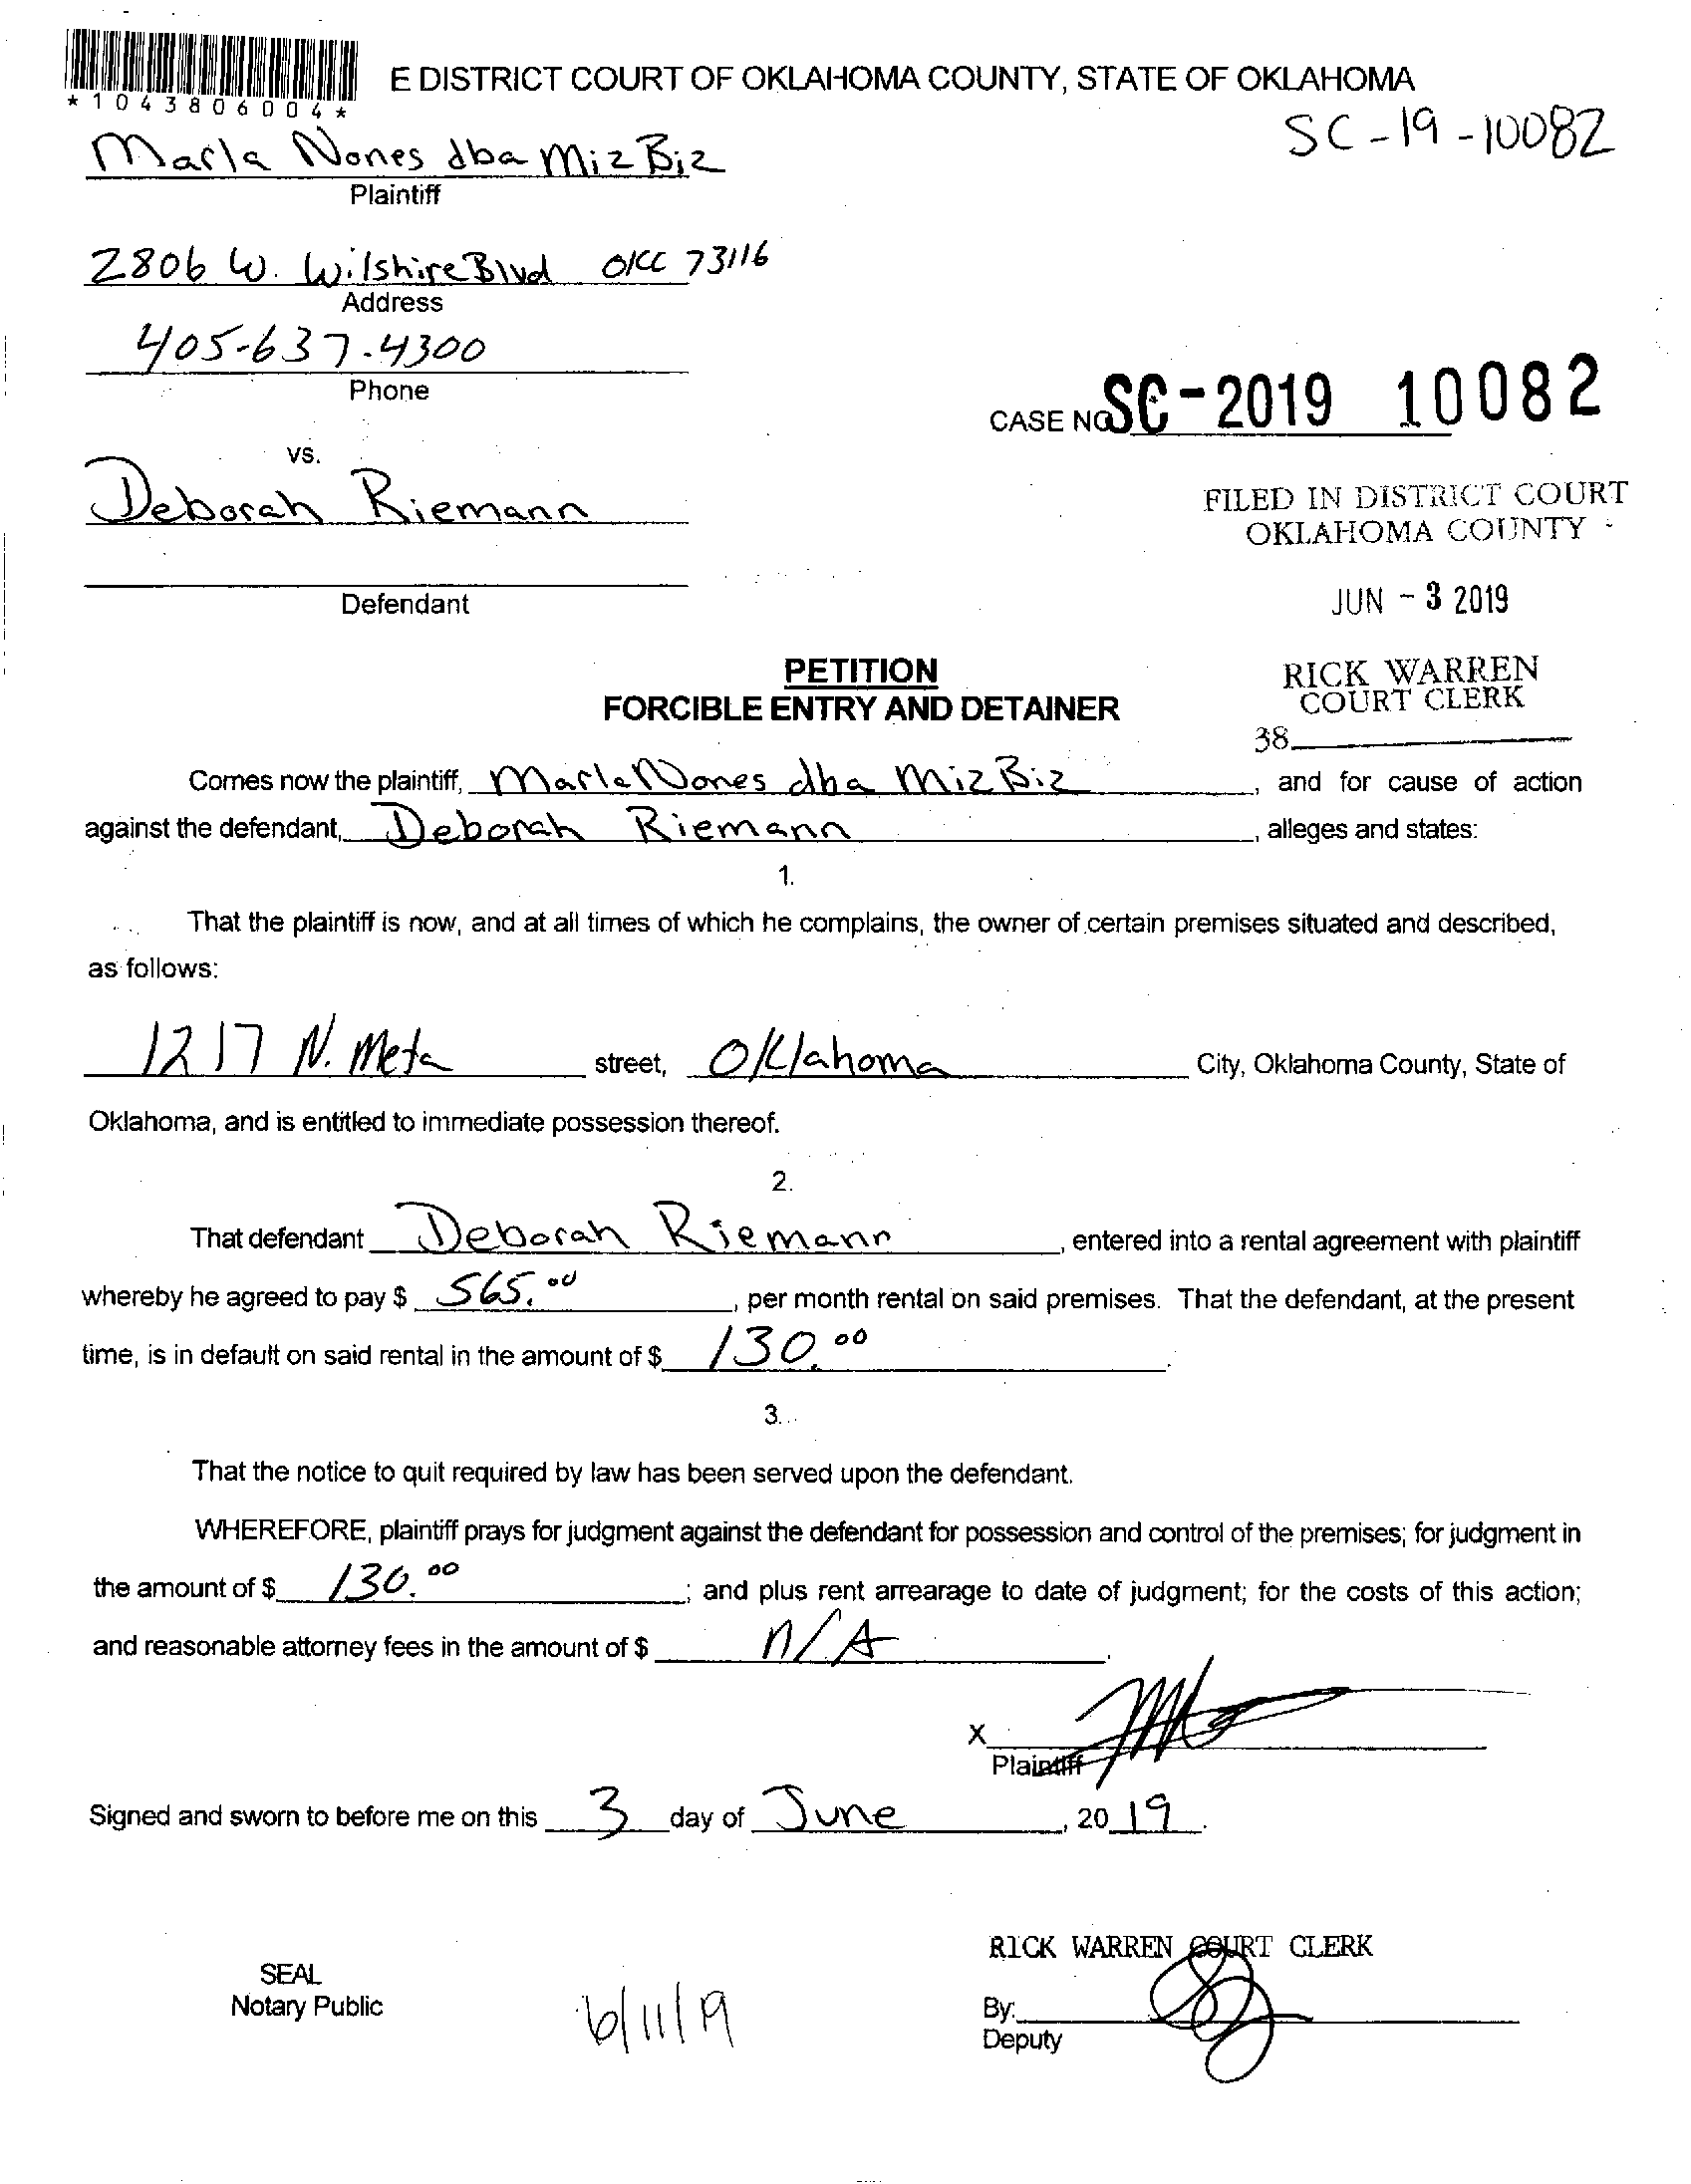 E DISTRICT COURT OF OKLAHOMA COUNTY, STATE OF OKLAHOMA
*1043806004*
SC-19-10082
Marla Nones dba Miz Biz
Plaintiff
2806 W. Wilshire Blvd OKC 73116
Address
405-637-4300
Phone
CASE NO SC-2019 10082
vs.
Deborah Riemann
FILED IN DISTRICT COURT
OKLAHOMA COUNTY
Defendant
JUN - 3 2019
PETITION
FORCIBLE ENTRY AND DETAINER
RICK WARREN
COURT CLERK
38
Comes now the plaintiff, Marla Nones dba Miz Biz, and for cause of action
against the defendant, Deborah Riemann, alleges and states:
1.
That the plaintiff is now, and at all times of which he complains, the owner of certain premises situated and described,
as follows:
1217 N. Meta street, Oklahoma City, Oklahoma County, State of
Oklahoma, and is entitled to immediate possession thereof.
2.
That defendant Deborah Riemann, entered into a rental agreement with plaintiff
whereby he agreed to pay $ 565.00, per month rental on said premises. That the defendant, at the present
time, is in default on said rental in the amount of $ 130.00.
3.
That the notice to quit required by law has been served upon the defendant.
WHEREFORE, plaintiff prays for judgment against the defendant for possession and control of the premises; for judgment in
the amount of $ 130.00; and plus rent arrearage to date of judgment; for the costs of this action;
and reasonable attorney fees in the amount of $ n/A.
X
Plaintiff
Signed and sworn to before me on this 3 day of June, 20 19.
RICK WARREN COURT CLERK
SEAL
Notary Public
6/11/19
By:
Deputy